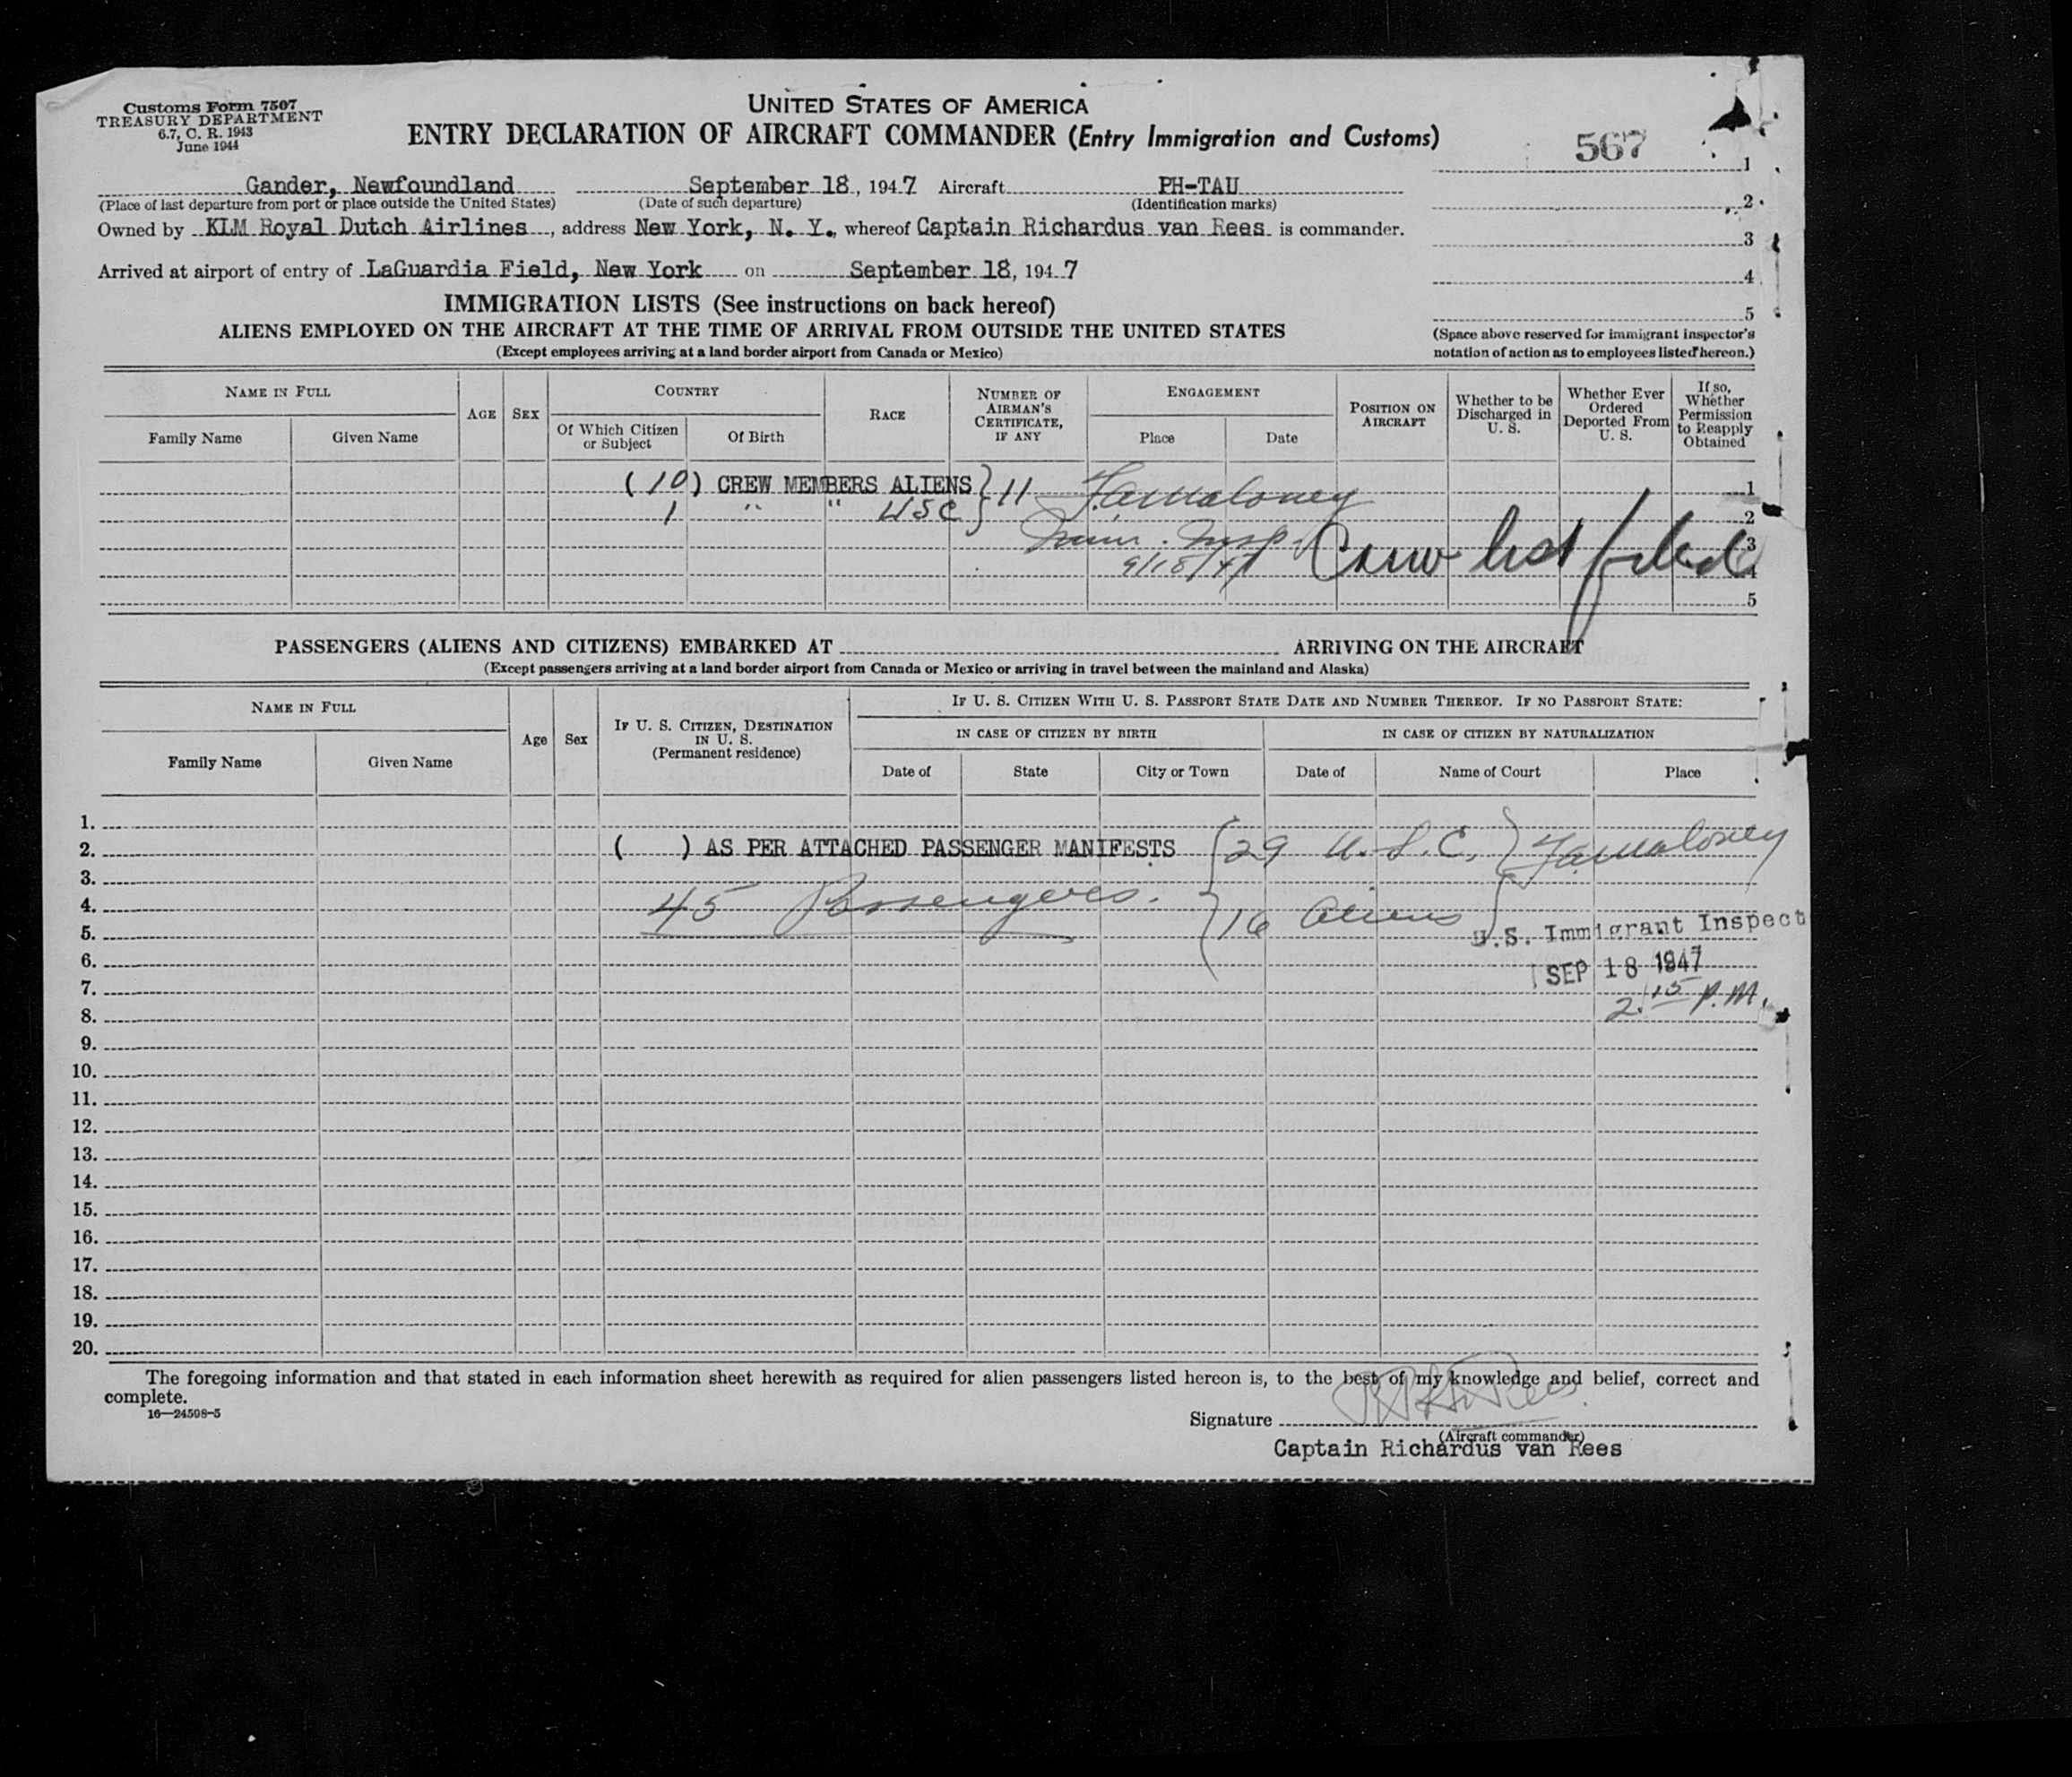 Customs Form 7507
TREASURY DEPARTMENT
6.7, C. R. 1943
June 1944
UNITED STATES OF AMERICA
ENTRY DECLARATION OF AIRCRAFT COMMANDER (Entry Immigration and Customs)
567
Gander, Newfoundland September 18, 1947 Aircraft PH-TAU
(Place of last departure from port or place outside the United States) (Date of such departure) (Identification marks)
Owned by KLM Royal Dutch Airlines, address New York, N. Y., whereof Captain Richardus van Rees is commander.
Arrived at airport of entry of LaGuardia Field, New York on September 18, 1947
1
2
3
4
5
(Space above reserved for immigrant inspector's
notation of action as to employees listed hereon.)
IMMIGRATION LISTS (See instructions on back hereof)
ALIENS EMPLOYED ON THE AIRCRAFT AT THE TIME OF ARRIVAL FROM OUTSIDE THE UNITED STATES
(Except employees arriving at a land border airport from Canada or Mexico)
NAME IN FULL
Family Name
Given Name
AGE
SEX
COUNTRY
Of Which Citizen
or Subject
Of Birth
RACE
NUMBER OF
AIRMAN'S
CERTIFICATE,
IF ANY
ENGAGEMENT
Place
Date
POSITION ON
AIRCRAFT
Whether to be
Discharged in
U. S.
Whether Ever
Ordered
Deported From
U. S.
If so,
Whether
Permission
to Reapply
Obtained
(10) CREW MEMBERS ALIENS } 11 F.A. Maloney 1
1 " " USC 2
Imm. Insp. Crew list filed 3
9/18/47 4
5
PASSENGERS (ALIENS AND CITIZENS) EMBARKED AT ARRIVING ON THE AIRCRAFT
(Except passengers arriving at a land border airport from Canada or Mexico or arriving in travel between the mainland and Alaska)
NAME IN FULL
Family Name
Given Name
Age
Sex
IF U. S. CITIZEN, DESTINATION
IN U. S.
(Permanent residence)
IF U. S. CITIZEN WITH U. S. PASSPORT STATE DATE AND NUMBER THEREOF. IF NO PASSPORT STATE:
IN CASE OF CITIZEN BY BIRTH
IN CASE OF CITIZEN BY NATURALIZATION
Date of
State
City or Town
Date of
Name of Court
Place
1.
2. ( ) AS PER ATTACHED PASSENGER MANIFESTS { 29 U.S.C. } F.A. Maloney
3.
4. 45 Passengers. 16 Aliens
5. U.S. Immigrant Inspect
6. SEP 18 1947
7. 2.15 P.M.
8.
9.
10.
11.
12.
13.
14.
15.
16.
17.
18.
19.
20.
The foregoing information and that stated in each information sheet herewith as required for alien passengers listed hereon is, to the best of my knowledge and belief, correct and
complete.
16—24598-5
Signature
(Aircraft commander)
Captain Richardus van Rees